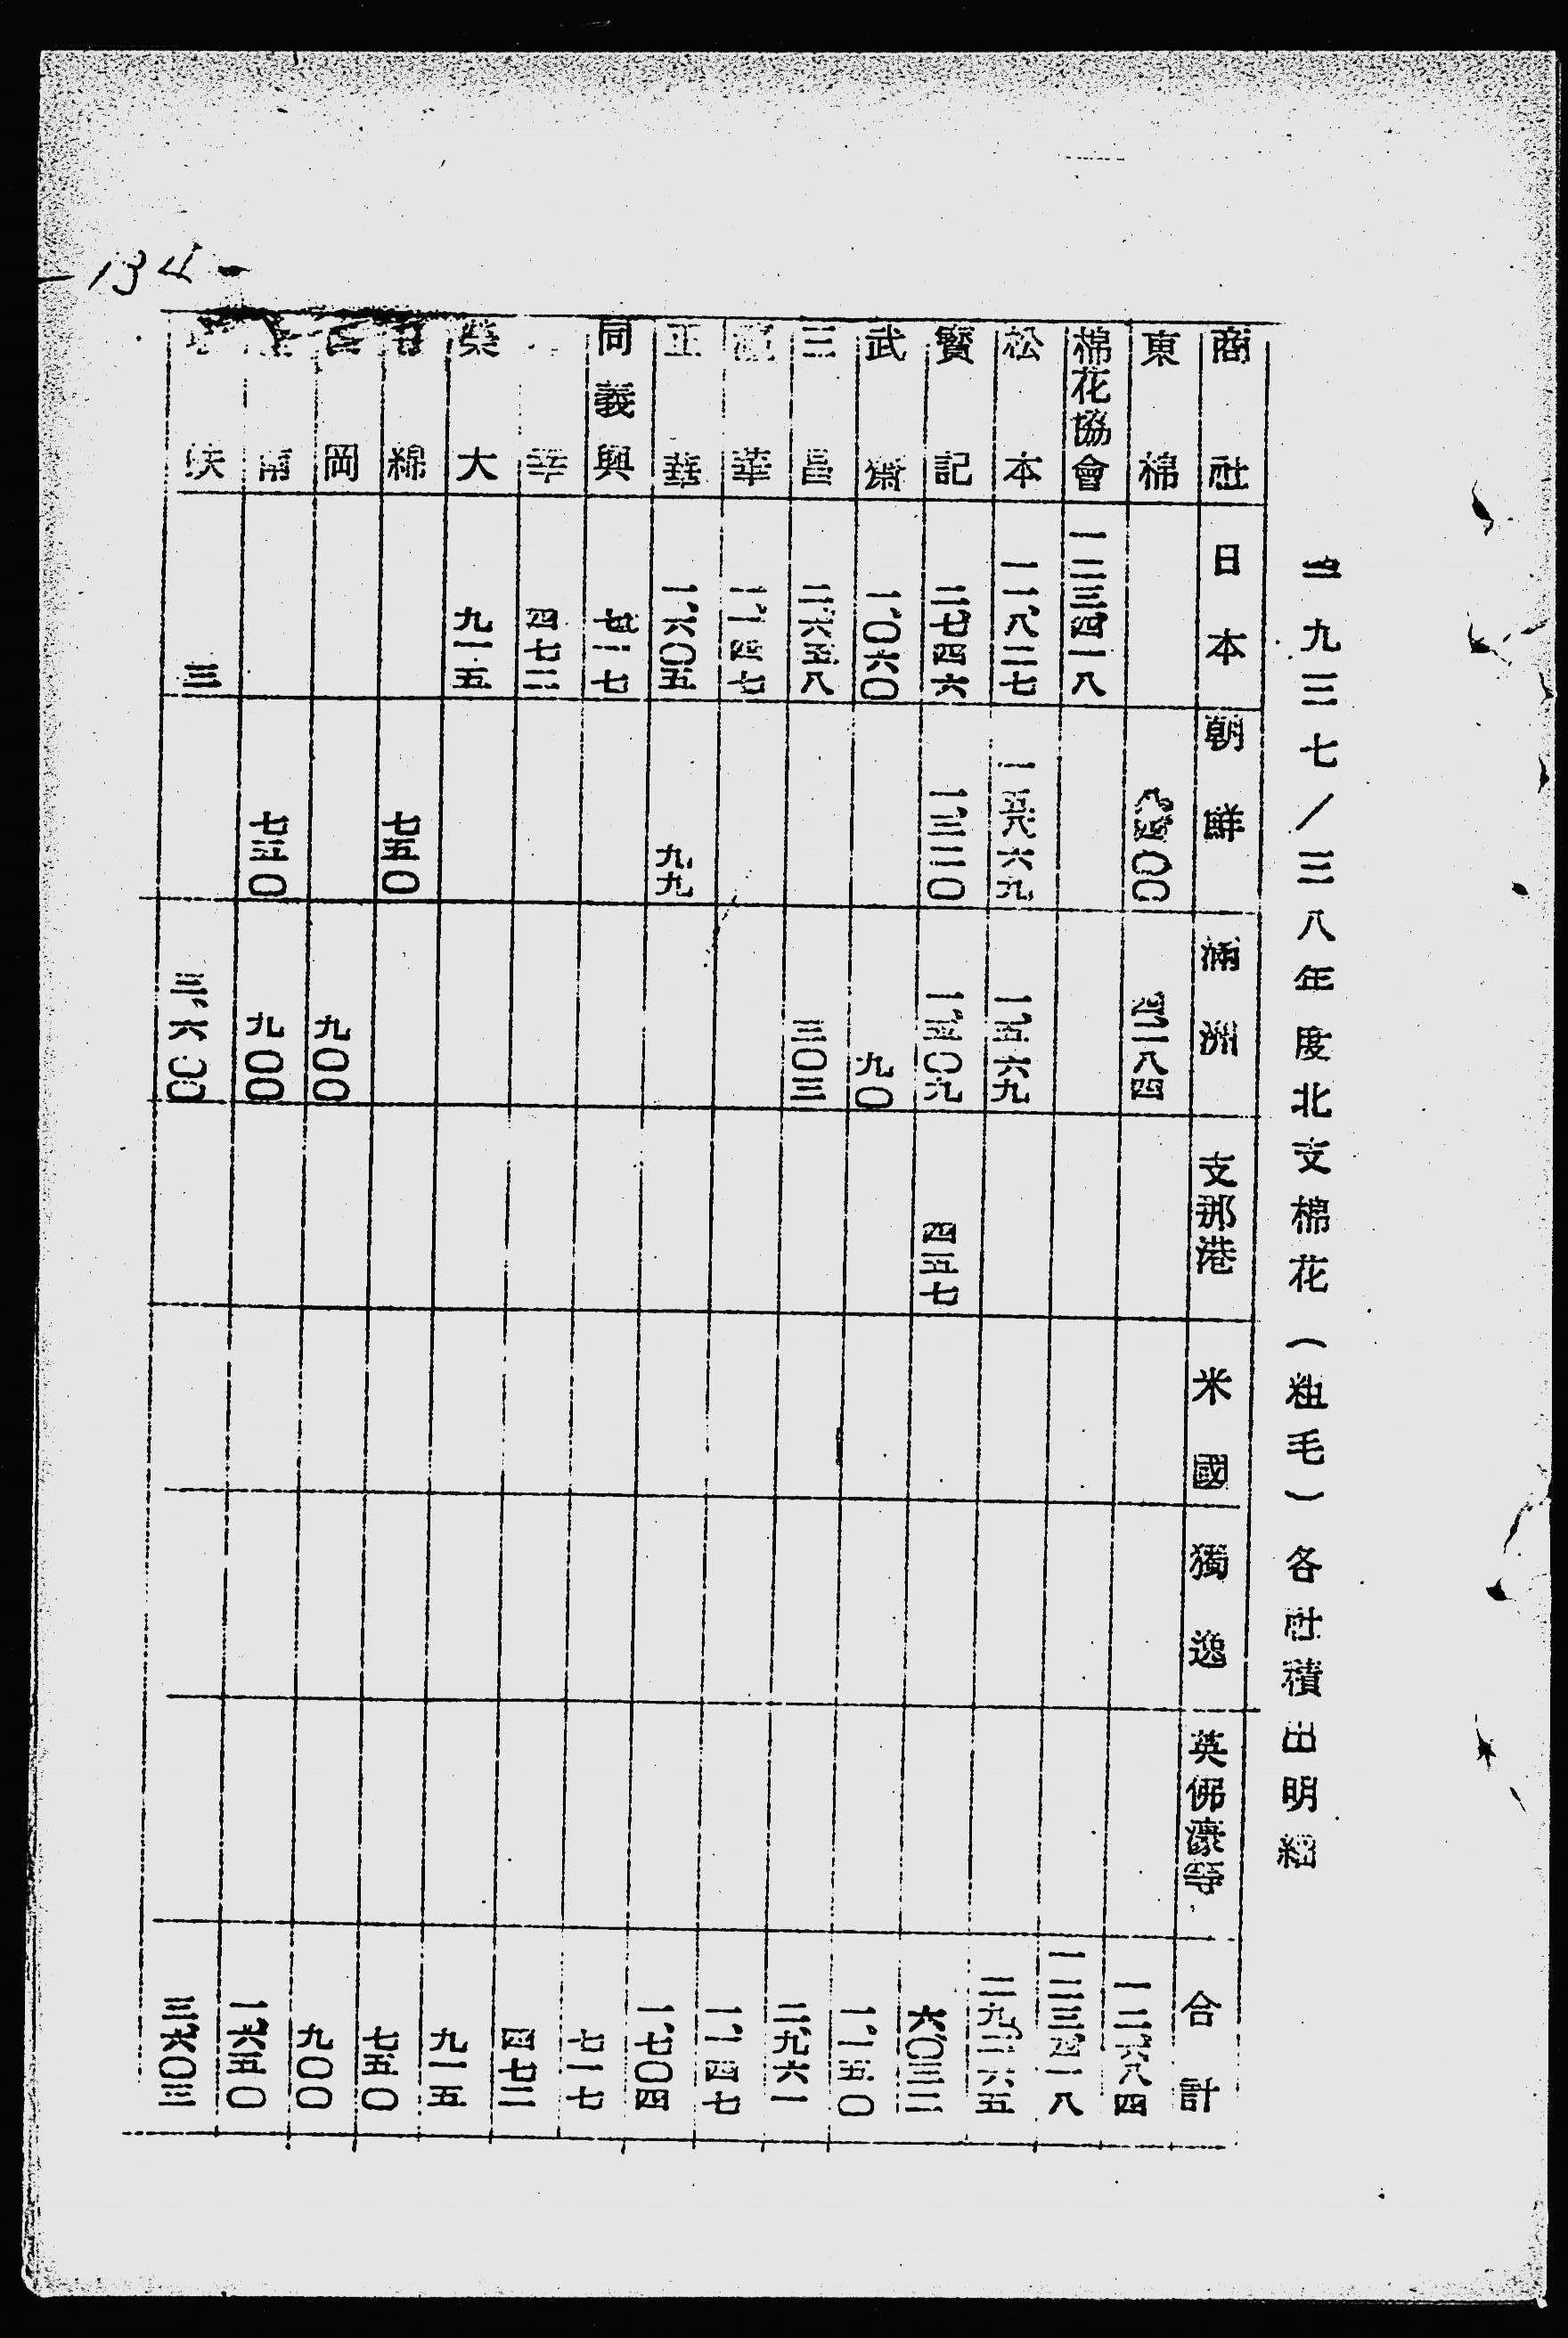 一九三七/三八年度北支棉花(粗毛)各社積出明細
商社 日本 朝鮮 滿洲 支那港 米國 獨逸 英佛濠等 合計
東棉 八、四〇〇 四、二八四 一二、六八四
棉花協會 一二三、四一八 一二三、四一八
松本 一一、八二七 一五、八六九 一、五六九 二九、二六五
寳記 二、七四六 一、三二〇 一、五〇九 四五七 六、〇三二
武齋 一、〇六〇 九〇 一、一五〇
三昌 二、六五八 三〇三 二、九六一
華 一、一四七 一、一四七
正華 一、六〇五 九九 一、七〇四
同義興 七一七 七一七
華 四七二 四七二
榮大 九一五 九一五
綿 七五〇 七五〇
岡 九〇〇 九〇〇
南 七五〇 九〇〇 一、六五〇
三 三、六〇〇 三、六〇三
-134-